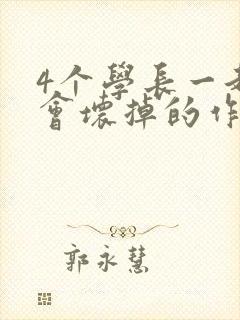 4个學長一
會壞掉的作
郭永慧